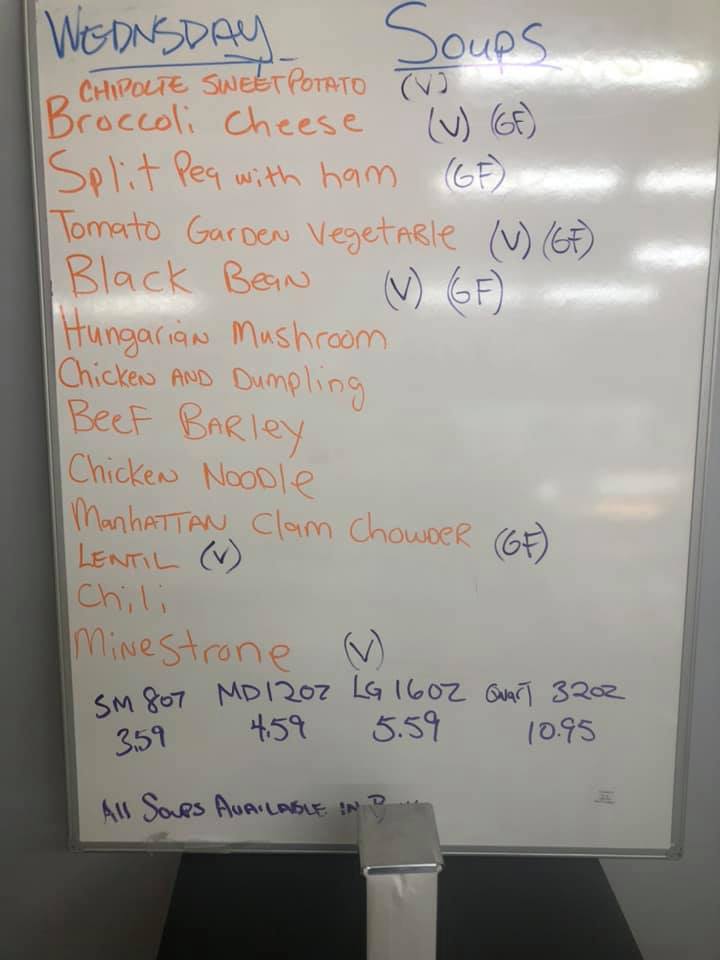 WEDNSDAY Soups
CHIPOLTE SWEETPOTATO (V)
Broccoli Cheese (V) (GF)
Split Pea with ham (GF)
Tomato Garden Vegetable (V) (GF)
Black Bean (V) (GF)
Hungarian Mushroom
Chicken AND Dumpling
Beef Barley
Chicken Noodle
Manhattan Clam Chowder (GF)
LENTIL (V)
Chili
Minestrone (V)
SM 8OZ MD12OZ LG 16OZ Quart 32OZ
3.59 4.59 5.59 10.95
All Soups Available in